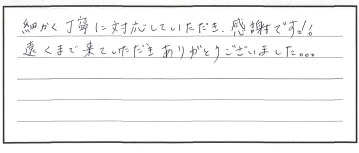 細かく丁寧に対応していただき、感謝です!!
遠くまで来ていただきありがとうございました。。。